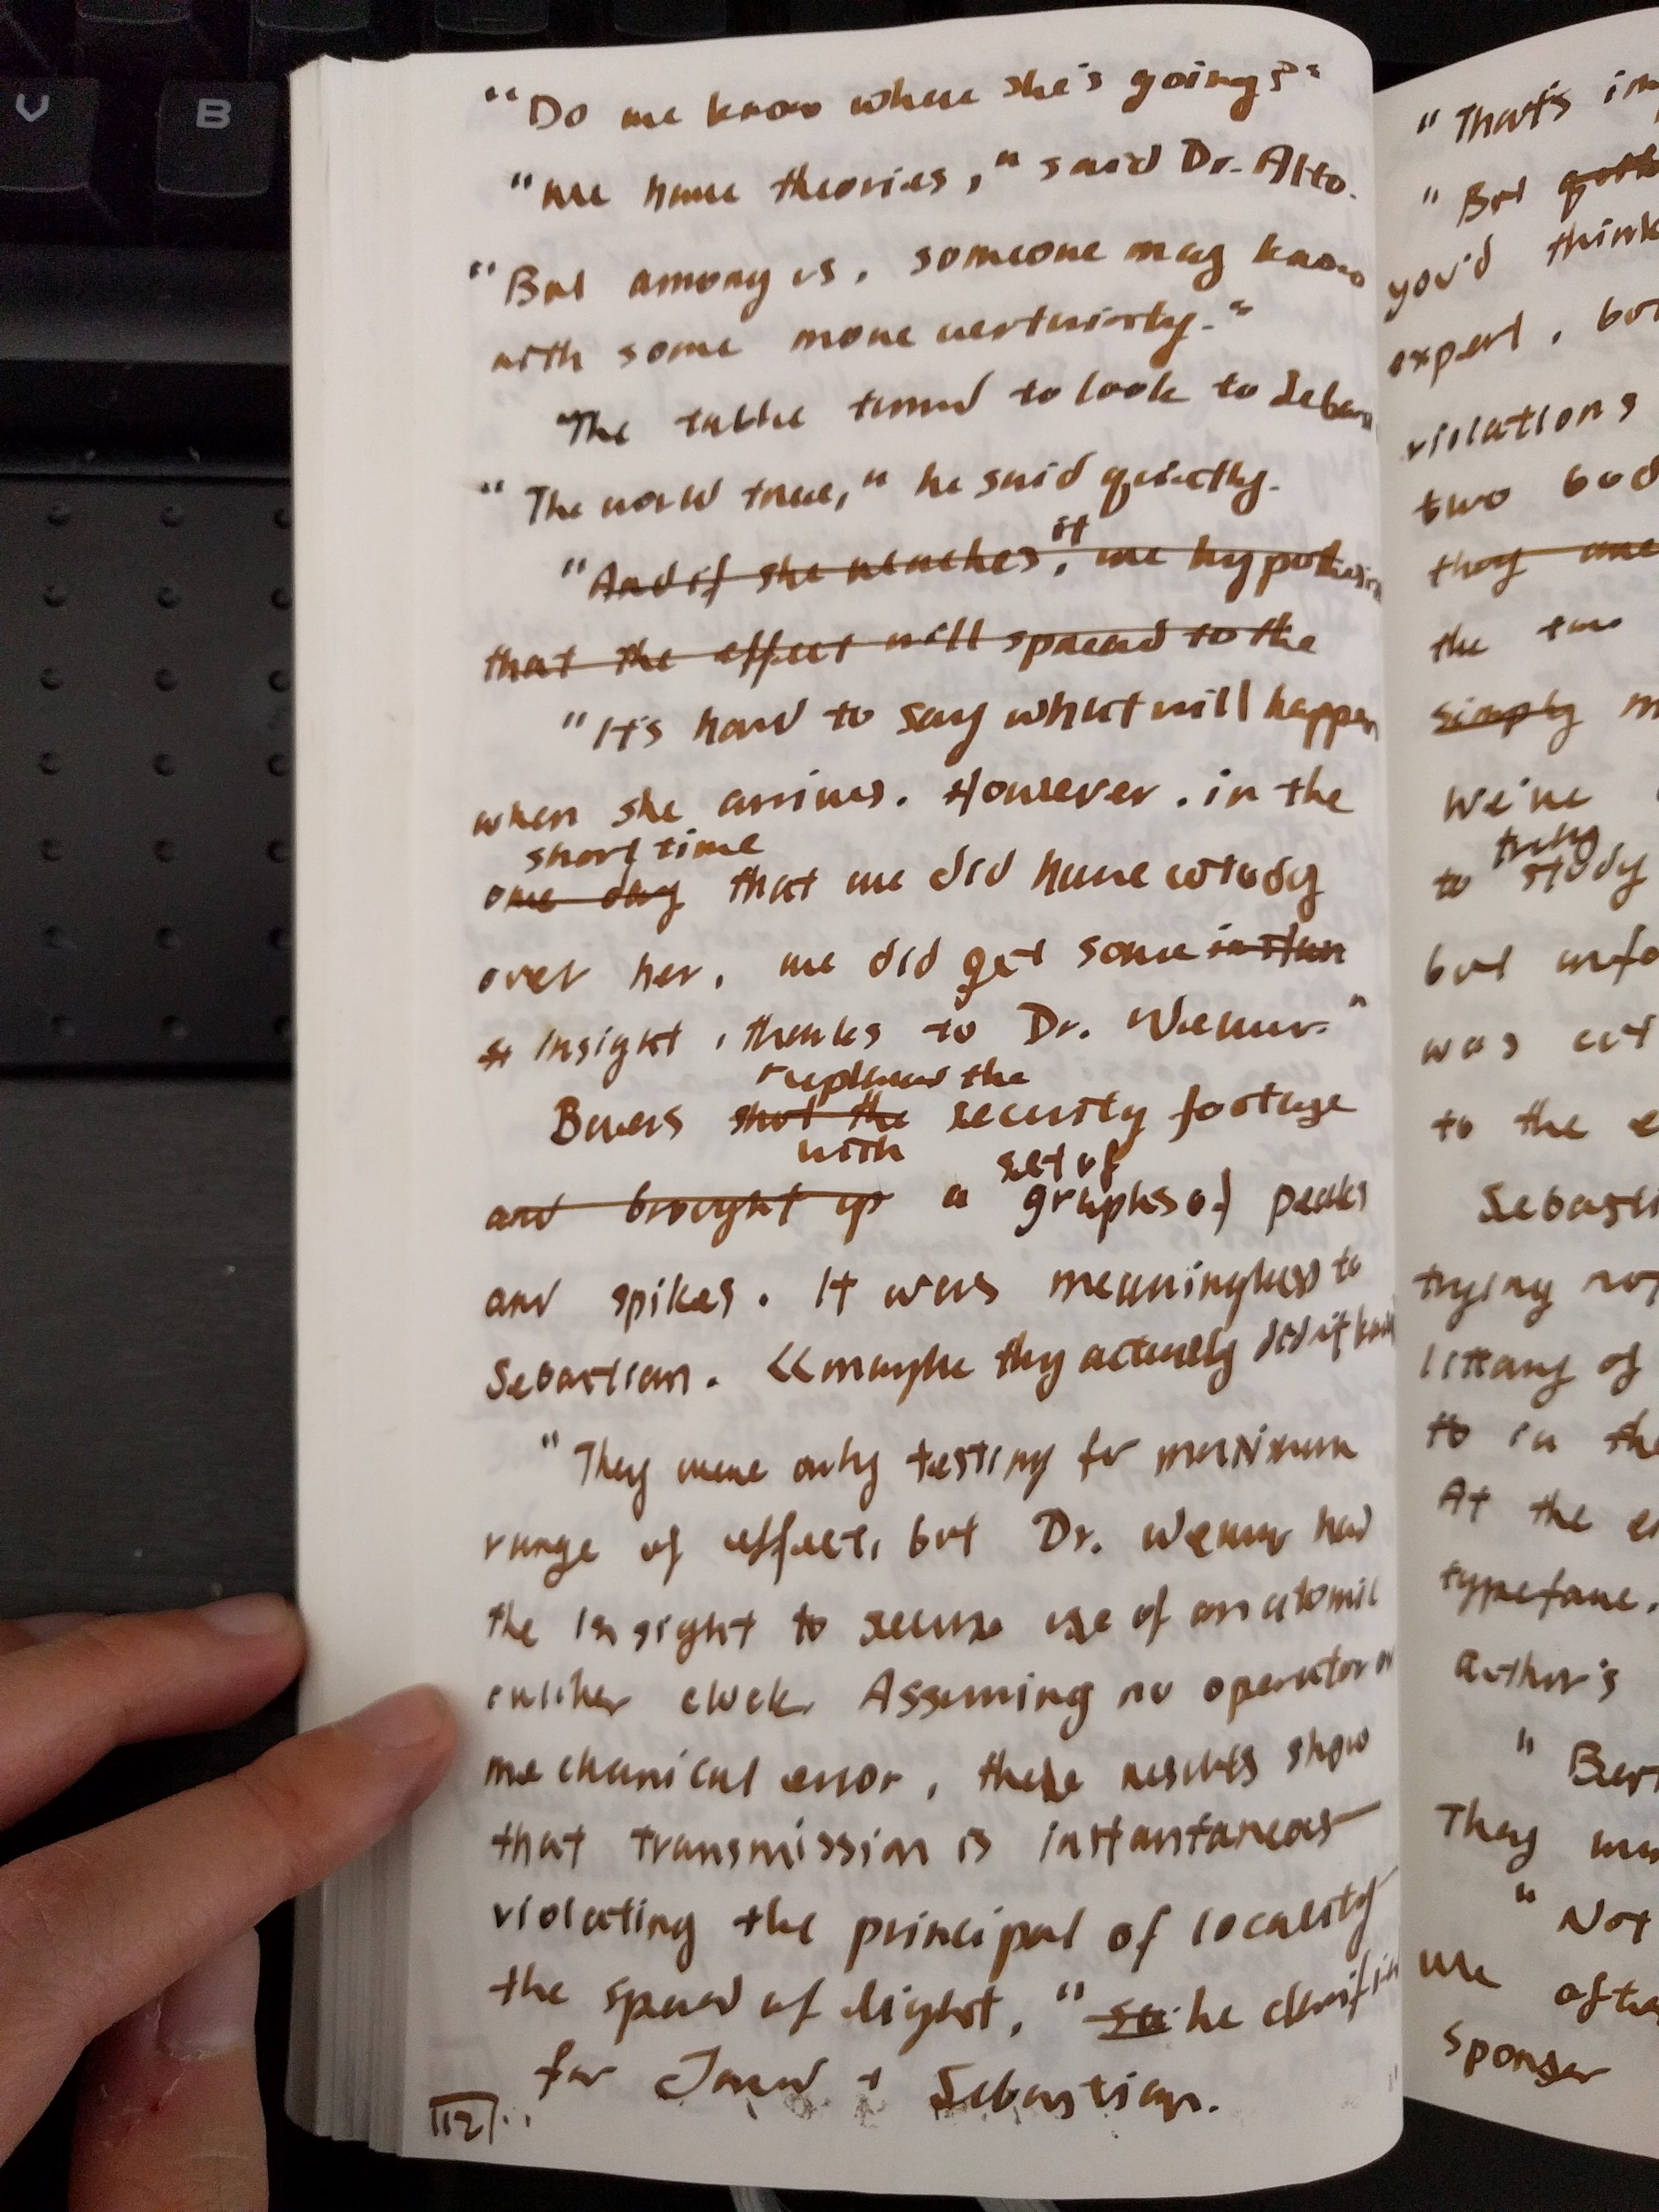 V B
"Do we know where she's going?"
"We have theories," said Dr. Alto.
"But among us, someone may know
with some more certainty."
The table turned to look to Sebas
"The world tree," he said quietly.
it
"And if she reaches, we hypothesize
that the effect will spread to the
"It's hard to say what will happen
when she arrives. However, in the
short time
one day that we did have custody
over her, we did get some
insight, thanks to Dr. Werner."
replaced the
Bowers shut the security footage
with set of
and brought up a graphs of peaks
and spikes. It was meaningless to
Sebastian. <<maybe they actually did it
"They were only testing for maximum
range of effect, but Dr. Werner had
the insight to secure use of an atomic
clock. Assuming no operator or
mechanical error, these results show
that transmission is instantaneous—
violating the principal of locality—
the speed of light," he
for Jared + Sebastian.
112
"That's
"But
you'd think
expert, but
violations
two bod
they are
the two
simply
We've
trying
to study
but unfo
was cut
to the
Sebasti
trying not
littany of
to in the
At the
typeface.
author's
"
They
"Not
we
sponsor